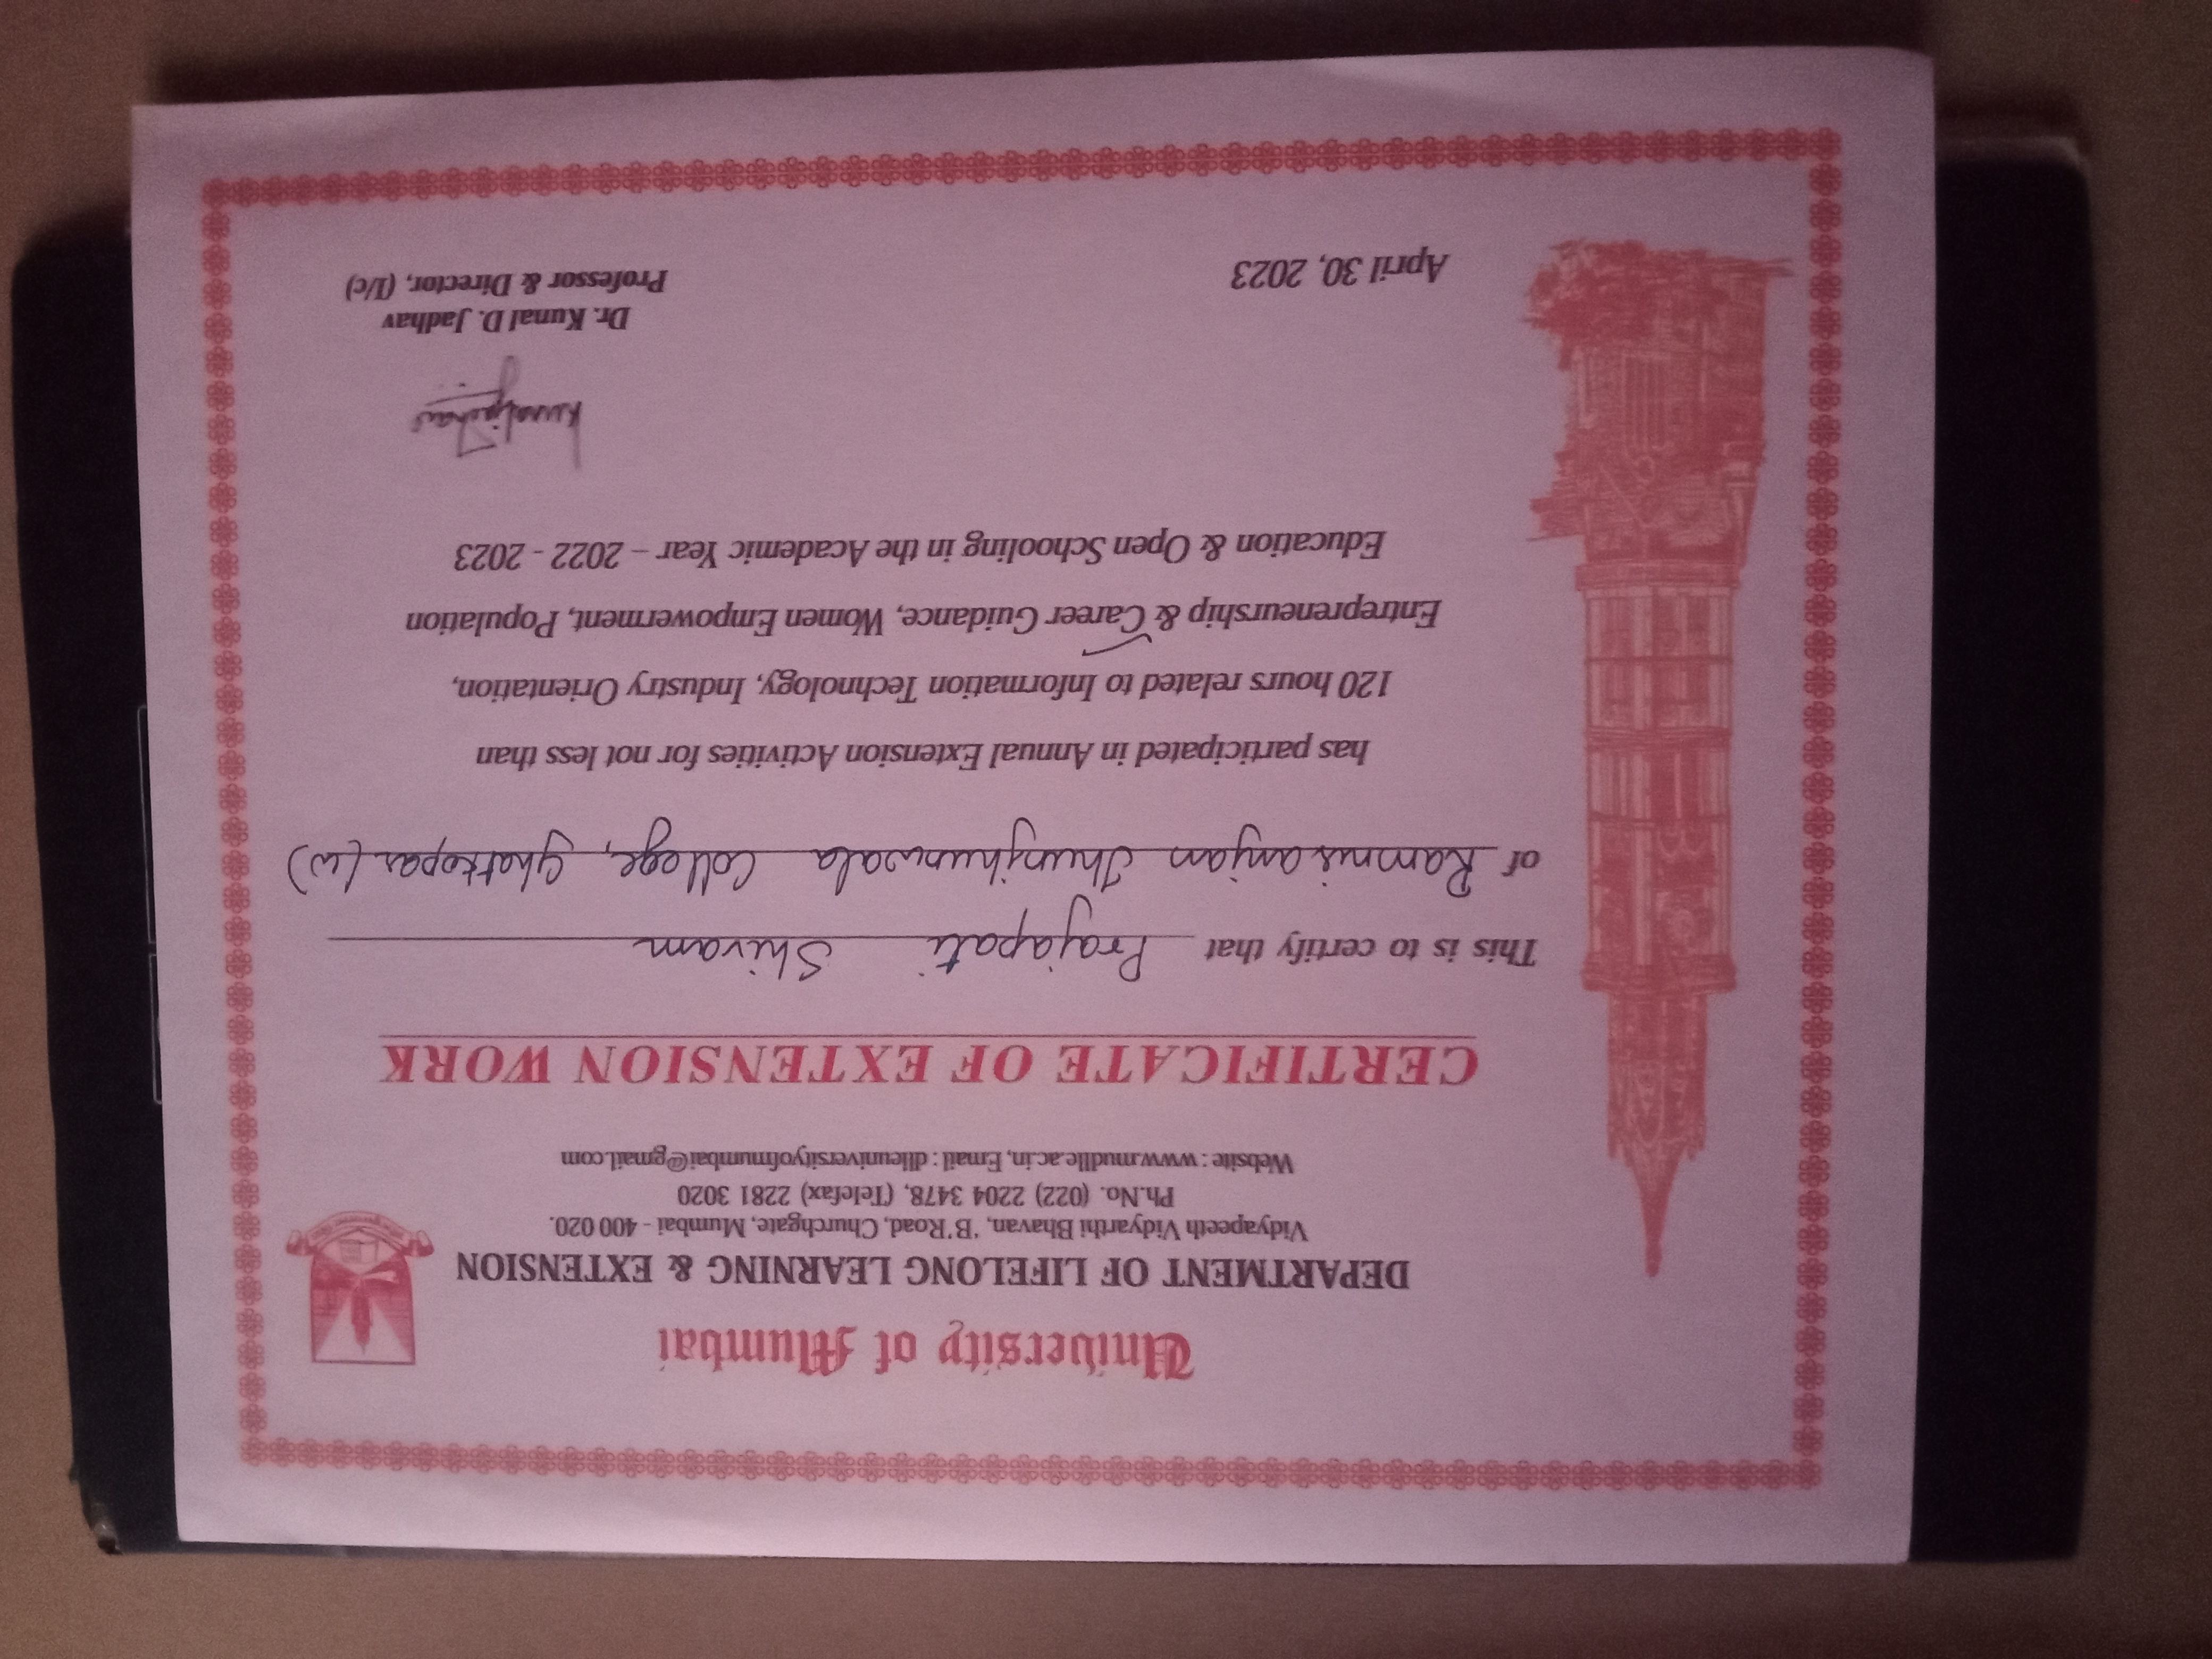 University of Mumbai
DEPARTMENT OF LIFELONG LEARNING & EXTENSION
Vidyapeeth Vidyarthi Bhavan, 'B'Road, Churchgate, Mumbai - 400 020.
Ph.No. (022) 2204 3478, (Telefax) 2281 3020
Website : www.mudlle.ac.in, Email : dlleuniversityofmumbai@gmail.com
CERTIFICATE OF EXTENSION WORK
This is to certify that Prajapati Shivam
of Ramniranjan Jhunjhunwala College, Ghatkopar (W)
has participated in Annual Extension Activities for not less than
120 hours related to Information Technology, Industry Orientation,
Entrepreneurship & Career Guidance, Women Empowerment, Population
Education & Open Schooling in the Academic Year – 2022 - 2023
kunaljadhav
Dr. Kunal D. Jadhav
Professor & Director, (I/c)
April 30, 2023